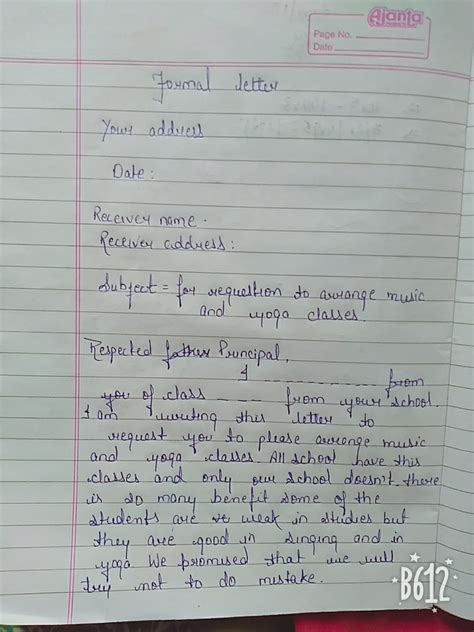 Ajanta
Page No.
Date
Formal letter
Your address
Date :
Receiver name .
Receiver address :
Subject = for requestion to arrange music
and yoga classes.
Respected father Principal,
I ____________ from
you of class ____ from your school.
I am writing this letter to
request you to please arrange music
and yoga classes. All school have this
classes and only our school doesn't. there
is so many benefit some of the
students are we weak in studies but
they are good in singing and in
yoga We promised that we will
try not to do mistake.
B612